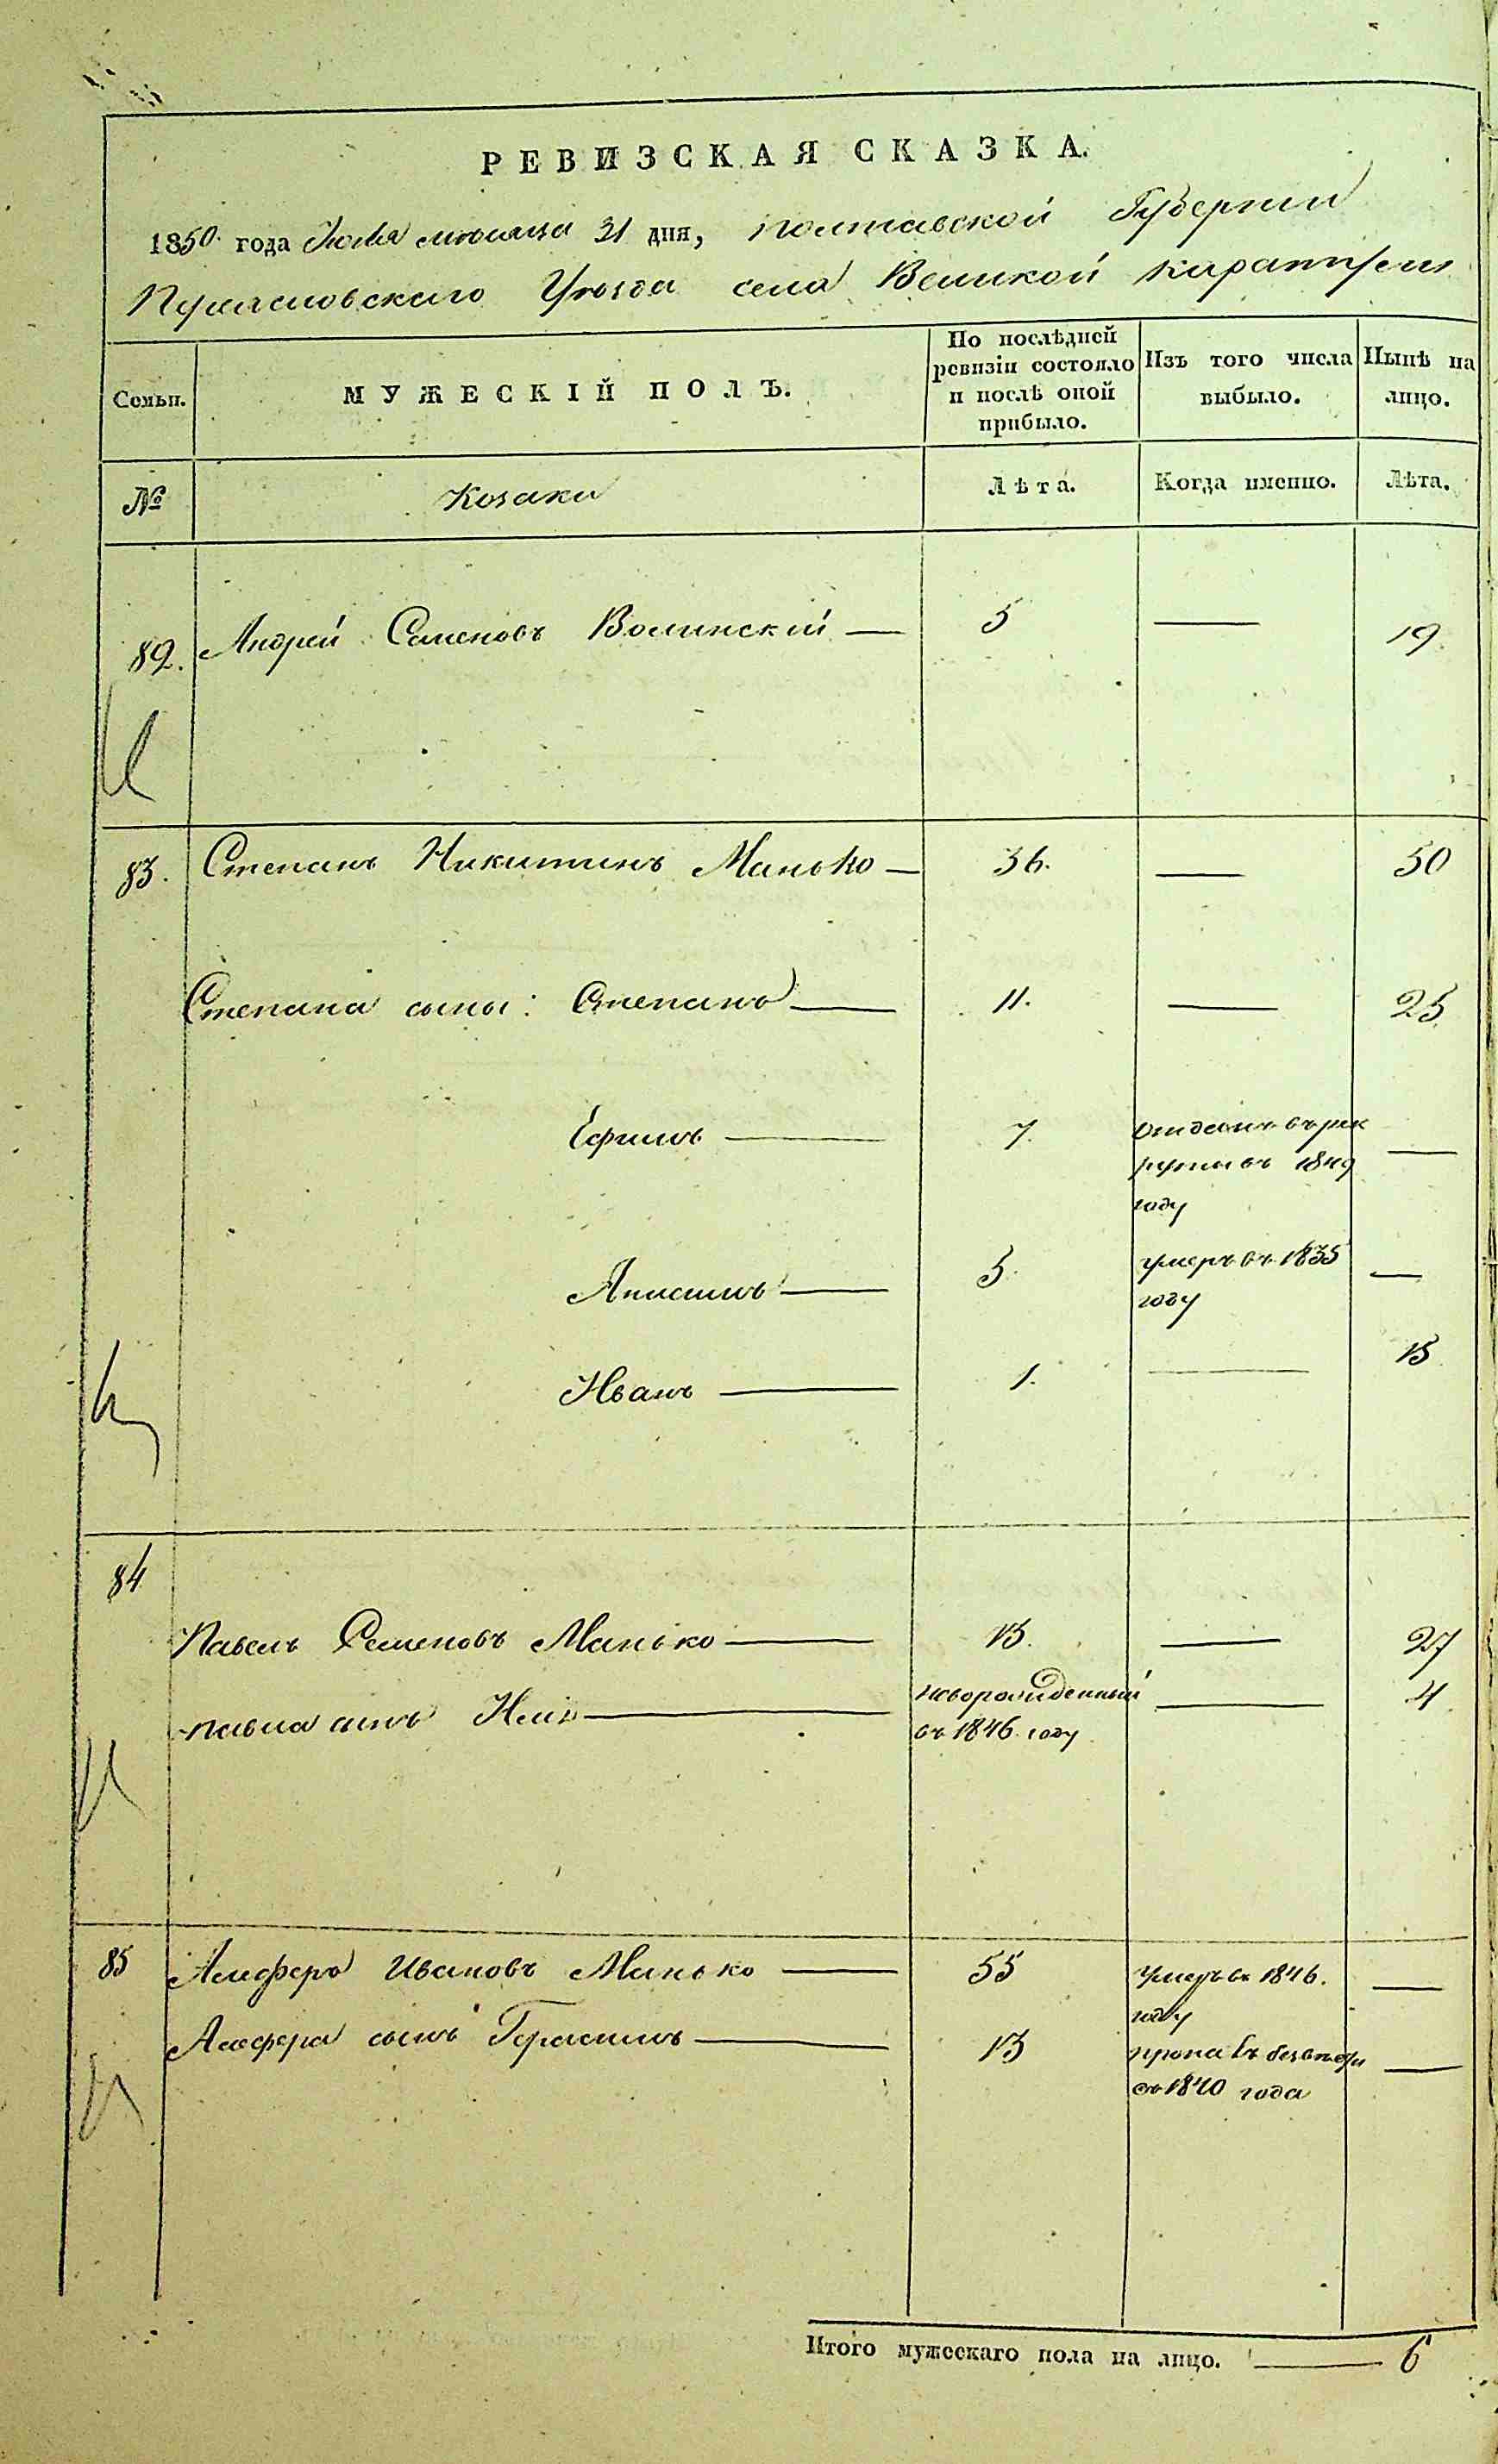 РЕВИЗСКАЯ СКАЗКА.
1850 года Июля месяца 31 дня, Полтавской Губернии
Уѣзда села Великой Каратули
Семьи.
МУЖЕСКІЙ ПОЛЪ.
По послѣдней ревизіи состояло и послѣ оной прибыло.
Изъ того числа выбыло.
Нынѣ на лицо.
№
Козаки
Лѣта.
Когда именно.
Лѣта.
82. Андрей Семеновъ Волинскій — 5 — 19
83. Степанъ Никитинъ Манько — 36. — 50
Степана сыны: Степанъ — 11. — 25
Ефимъ — 7. отданъ въ рек
руты въ 1849 —
году
Анисимъ — 5. умеръ въ 1835 —
году
Иванъ — 1. — 15
84
Павелъ Семеновъ Манько — 13. — 27
Павла сынъ — новорожденный — 4
въ 1846 году
85 Алефѣръ Ивановъ Манько — 55 умеръ в 1846. —
году
Алефера сынъ Герасимъ — 13 пропалъ безвести —
съ 1840 года
Итого мужескаго пола на лицо. — 6